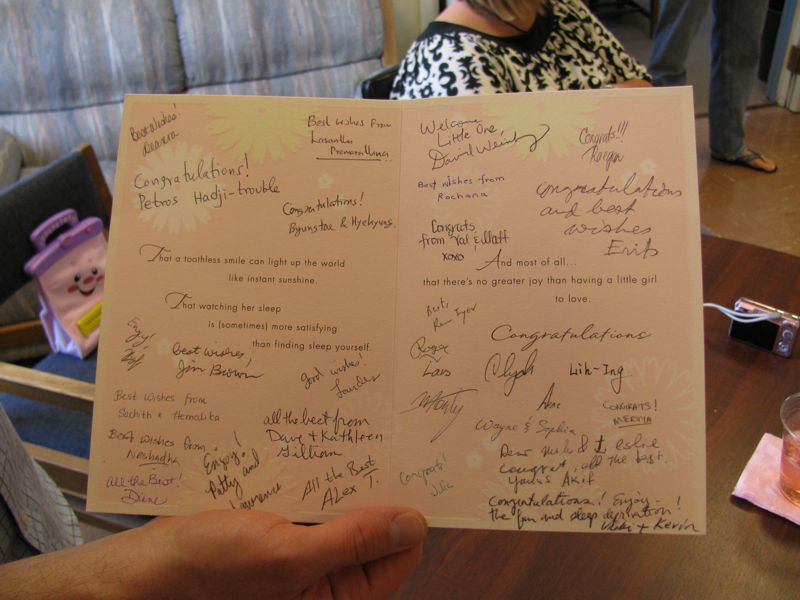 Best Wishes!
Best Wishes From
Lasantha
Premarathna
Congratulations!
Petros Hadji-trouble
Congratulations!
Byungtae & Hyehyung
That a toothless smile can light up the world
like instant sunshine.
That watching her sleep
is (sometimes) more satisfying
than finding sleep yourself.
Enjoy!
best wishes,
Jim Brown
Good wishes!
Lourdes
Best Wishes from
Sachith & Hemalika
Best Wishes from
Neshadha
all the Best!
Diane
Enjoy!
Patty and
Lawrence
all the best from
Dave + Kathleen
Gilliam
All the Best
Alex T.
Welcome
Little One,
David Weinberg
Congrats!!!
Best wishes from
Rochana
Congratulations
and best
wishes
Congrats
from Val & Matt
xoxo
And most of all...
that there's no greater joy than having a little girl
to love.
Best,
Congratulations
Roger
Lois
Lih-Ing
Monty
Anne
Wayne & Sophia
Congrats!
Congrats!
Julie
Dear Mark & Leslie
Congrat. all the best.
Yours Akif
Congratulations! Enjoy
the fun and sleep deprivation!
Vicki + Kevin